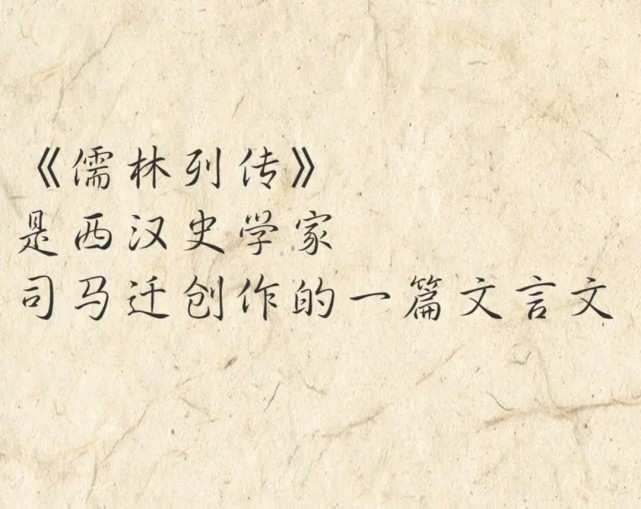 《儒林列传》
是西汉史学家
司马迁创作的一篇文言文